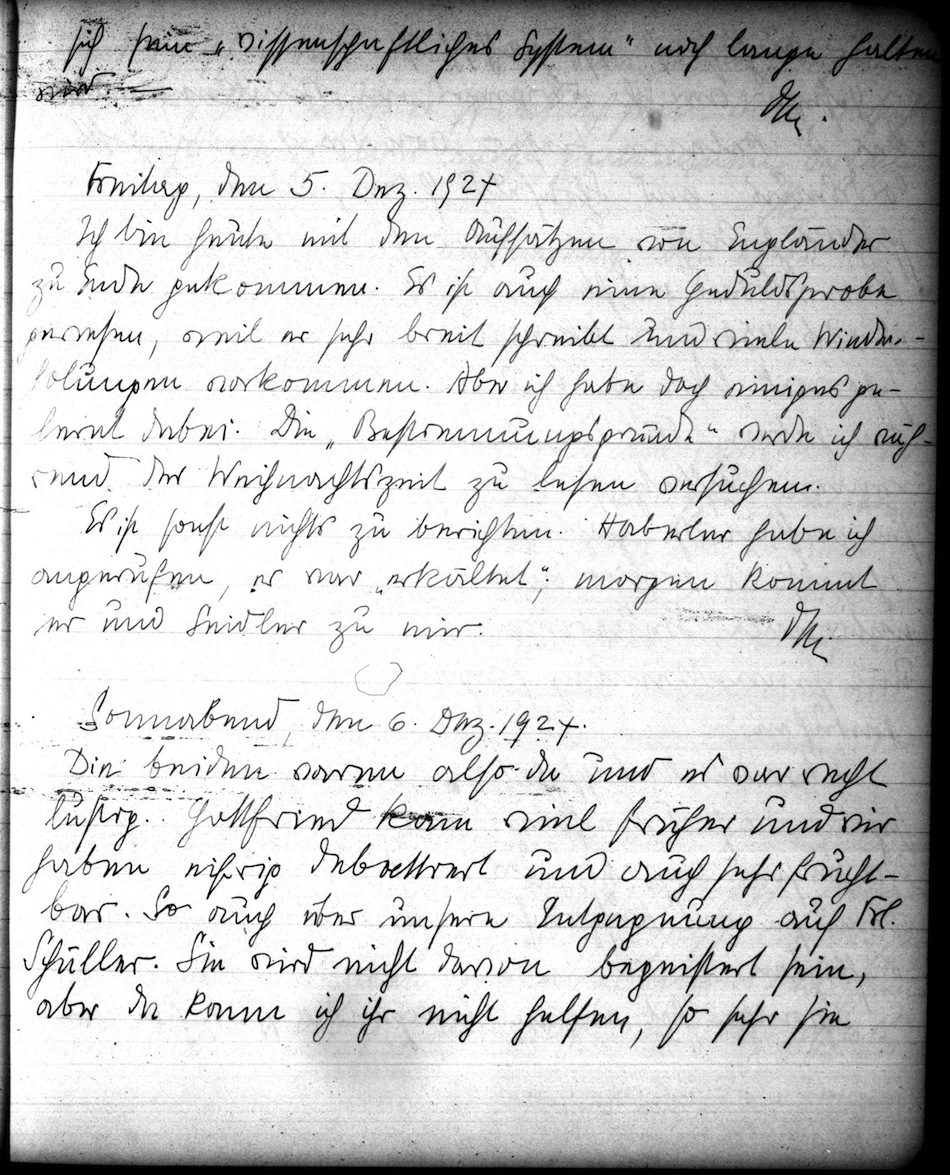 sich sein „wissenschaftliches System“ noch lange halten
wird. —
OM.
Freitag, den 5. Dez. 1924
Ich bin heute mit den Aufsätzen von Engländer
zu Ende gekommen. Es ist auch eine Geduldsprobe
gewesen, weil er sehr breit schreibt und viele Wieder-
holungen vorkommen. Aber ich habe doch einiges ge-
lernt dabei. Die „Bestimmungsgründe“ werde ich wäh-
rend der Weihnachtszeit zu lesen versuchen.
Es ist sonst nichts zu berichten. Haberler habe ich
angerufen, er war „erkältet“; morgen kommt
er und Seidler zu mir.
OM.
Sonnabend, den 6. Dez. 1924.
Die beiden waren also da und es war recht
lustig. Gottfried kam viel früher und wir
haben eifrig debattiert und auch sehr frucht-
bar. So auch über unsere Entgegnung auf Frl.
Schüller. Sie wird nicht davon begeistert sein,
aber da kann ich ihr nicht helfen, so sehr sie